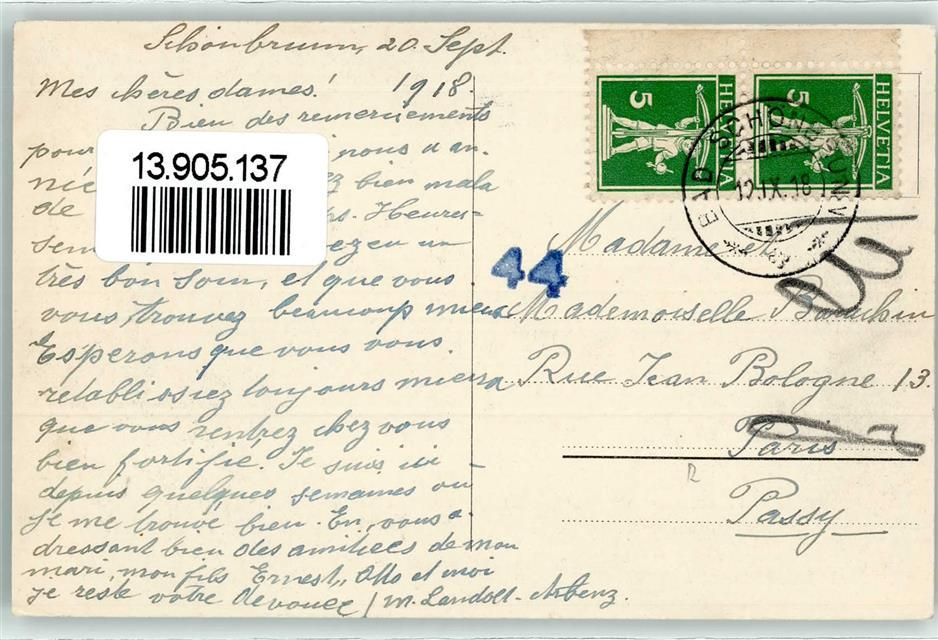 Schönbrunn, 20 Sept.
1918.
Mes chères dames!
Bien des remerciements
pour nous a an-
bien mala
de Heureu-
sem un
très bon soin, et que vous
vous trouvez beaucoup mieux
Esperons que vous vous
retablissiez toujours mieux
que vous rentrez chez vous
bien fortifie. Je suis ici
depuis quelques semaines ou
je me trouve bien. En vous a-
dressant bien des amitiées de mon
mari, mon fils Ernest, Otto et moi
je reste votre devouee / M. Landolt-Arbenz.
13.905.137
HELVETIA
5
HELVETIA
5
BAD SCHÖNBRUNN
44
Madame et
Mademoiselle
Rue Jean Bologne 13.
Paris
Passy